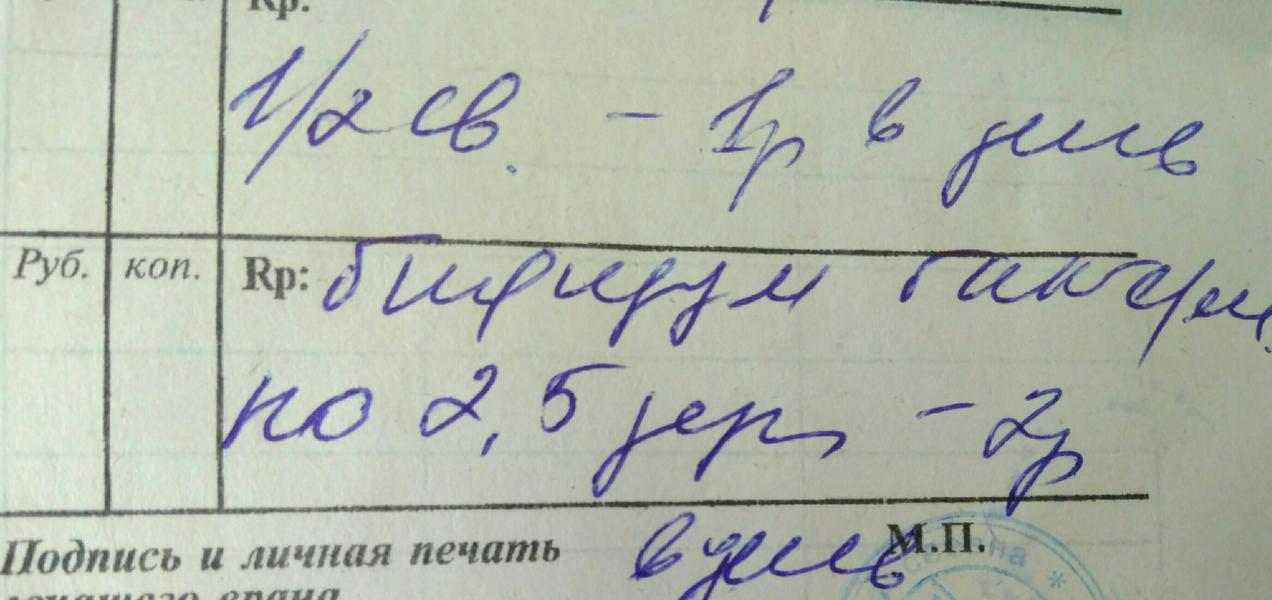 Rp:
1/2 св. - 1р в день
Руб. коп. Rp: бифидум бактери
по 2,5 дер - 2р
в день М.П.
Подпись и личная печать
лечащего врача